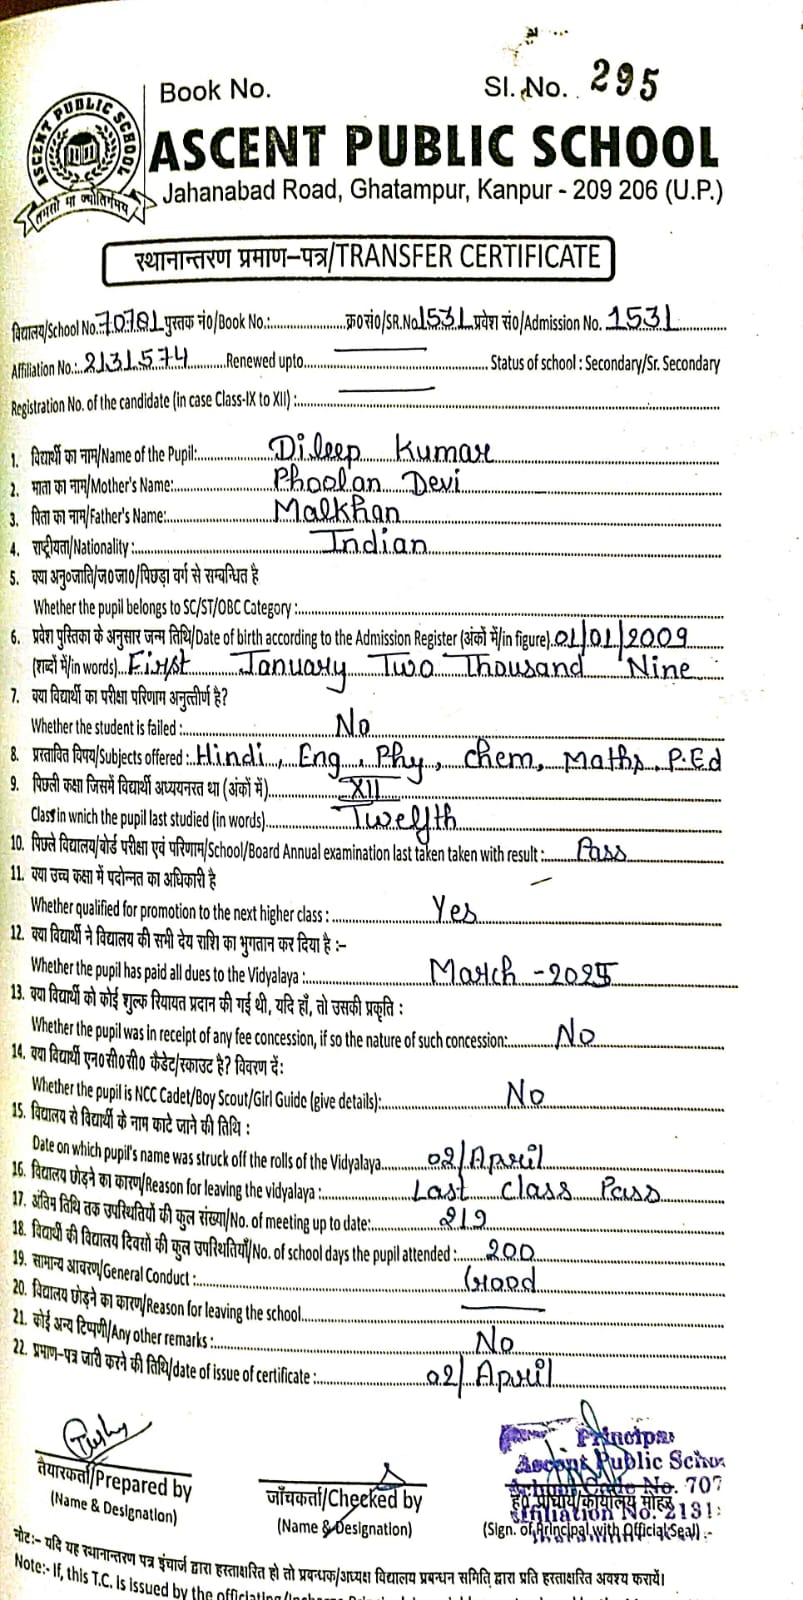 Book No.
Sl. No. 295
ASCENT PUBLIC SCHOOL
तमसो मा ज्योतिर्गमय
ASCENT PUBLIC SCHOOL
Jahanabad Road, Ghatampur, Kanpur - 209 206 (U.P.)
स्थानान्तरण प्रमाण–पत्र/TRANSFER CERTIFICATE
विद्यालय/School No. 70781 पुस्तक नं०/Book No.:........ क्र०सं०/SR.No 1531 प्रवेश सं०/Admission No. 1531
Affiliation No.: 2131574 Renewed upto........ Status of school : Secondary/Sr. Secondary
Registration No. of the candidate (in case Class-IX to XII) :........
1. विद्यार्थी का नाम/Name of the Pupil: Dileep Kumar
2. माता का नाम/Mother's Name: Phoolan Devi
3. पिता का नाम/Father's Name: Malkhan
4. राष्ट्रीयता/Nationality : Indian
5. क्या अनु०जाति/ज०जा०/पिछड़ा वर्ग से सम्बन्धित है
Whether the pupil belongs to SC/ST/OBC Category :........
6. प्रवेश पुस्तिका के अनुसार जन्म तिथि/Date of birth according to the Admission Register (अंकों में/in figure). 01/01/2009
(शब्दों में/in words)... First January Two Thousand Nine
7. क्या विद्यार्थी का परीक्षा परिणाम अनुत्तीर्ण है?
Whether the student is failed : No
8. प्रस्तावित विषय/Subjects offered : Hindi, Eng, Phy, Chem, Maths, P.Ed
9. पिछली कक्षा जिसमें विद्यार्थी अध्ययनरत था (अंकों में) XII
Class in wnich the pupil last studied (in words) Twelfth
10. पिछले विद्यालय/बोर्ड परीक्षा एवं परिणाम/School/Board Annual examination last taken taken with result : Pass
11. क्या उच्च कक्षा में पदोन्नत का अधिकारी है
Whether qualified for promotion to the next higher class : Yes
12. क्या विद्यार्थी ने विद्यालय की सभी देय राशि का भुगतान कर दिया है :-
Whether the pupil has paid all dues to the Vidyalaya : March - 2025
13. क्या विद्यार्थी को कोई शुल्क रियायत प्रदान की गई थी, यदि हाँ, तो उसकी प्रकृति :
Whether the pupil was in receipt of any fee concession, if so the nature of such concession: No
14. क्या विद्यार्थी एन०सी०सी० कैडेट/स्काउट है? विवरण दें:
Whether the pupil is NCC Cadet/Boy Scout/Girl Guide (give details): No
15. विद्यालय से विद्यार्थी के नाम काटे जाने की तिथि :
Date on which pupil's name was struck off the rolls of the Vidyalaya 02/April
16. विद्यालय छोड़ने का कारण/Reason for leaving the vidyalaya : Last class Pass
17. अंतिम तिथि तक उपस्थितियों की कुल संख्या/No. of meeting up to date: 219
18. विद्यार्थी की विद्यालय दिवसों की कुल उपस्थितियाँ/No. of school days the pupil attended : 200
19. सामान्य आचरण/General Conduct : Good
20. विद्यालय छोड़ने का कारण/Reason for leaving the school........
21. कोई अन्य टिप्पणी/Any other remarks : No
22. प्रमाण–पत्र जारी करने की तिथि/date of issue of certificate : 02/April
Principal
Ascent Public School
School Code No. 707
Affiliation No. 2131
तैयारकर्ता/Prepared by
(Name & Designation)
जाँचकर्ता/Checked by
(Name & Designation)
ह० प्राचार्य/कार्यालय मोहर
(Sign. of Principal with Official Seal) :-
नोट:- यदि यह स्थानान्तरण पत्र इंचार्ज द्वारा हस्ताक्षरित हो तो प्रबन्धक/अध्यक्ष विद्यालय प्रबन्धन समिति द्वारा प्रति हस्ताक्षरित अवश्य करायें।
Note:- If, this T.C. is issued by the officiating/Incharge Principal